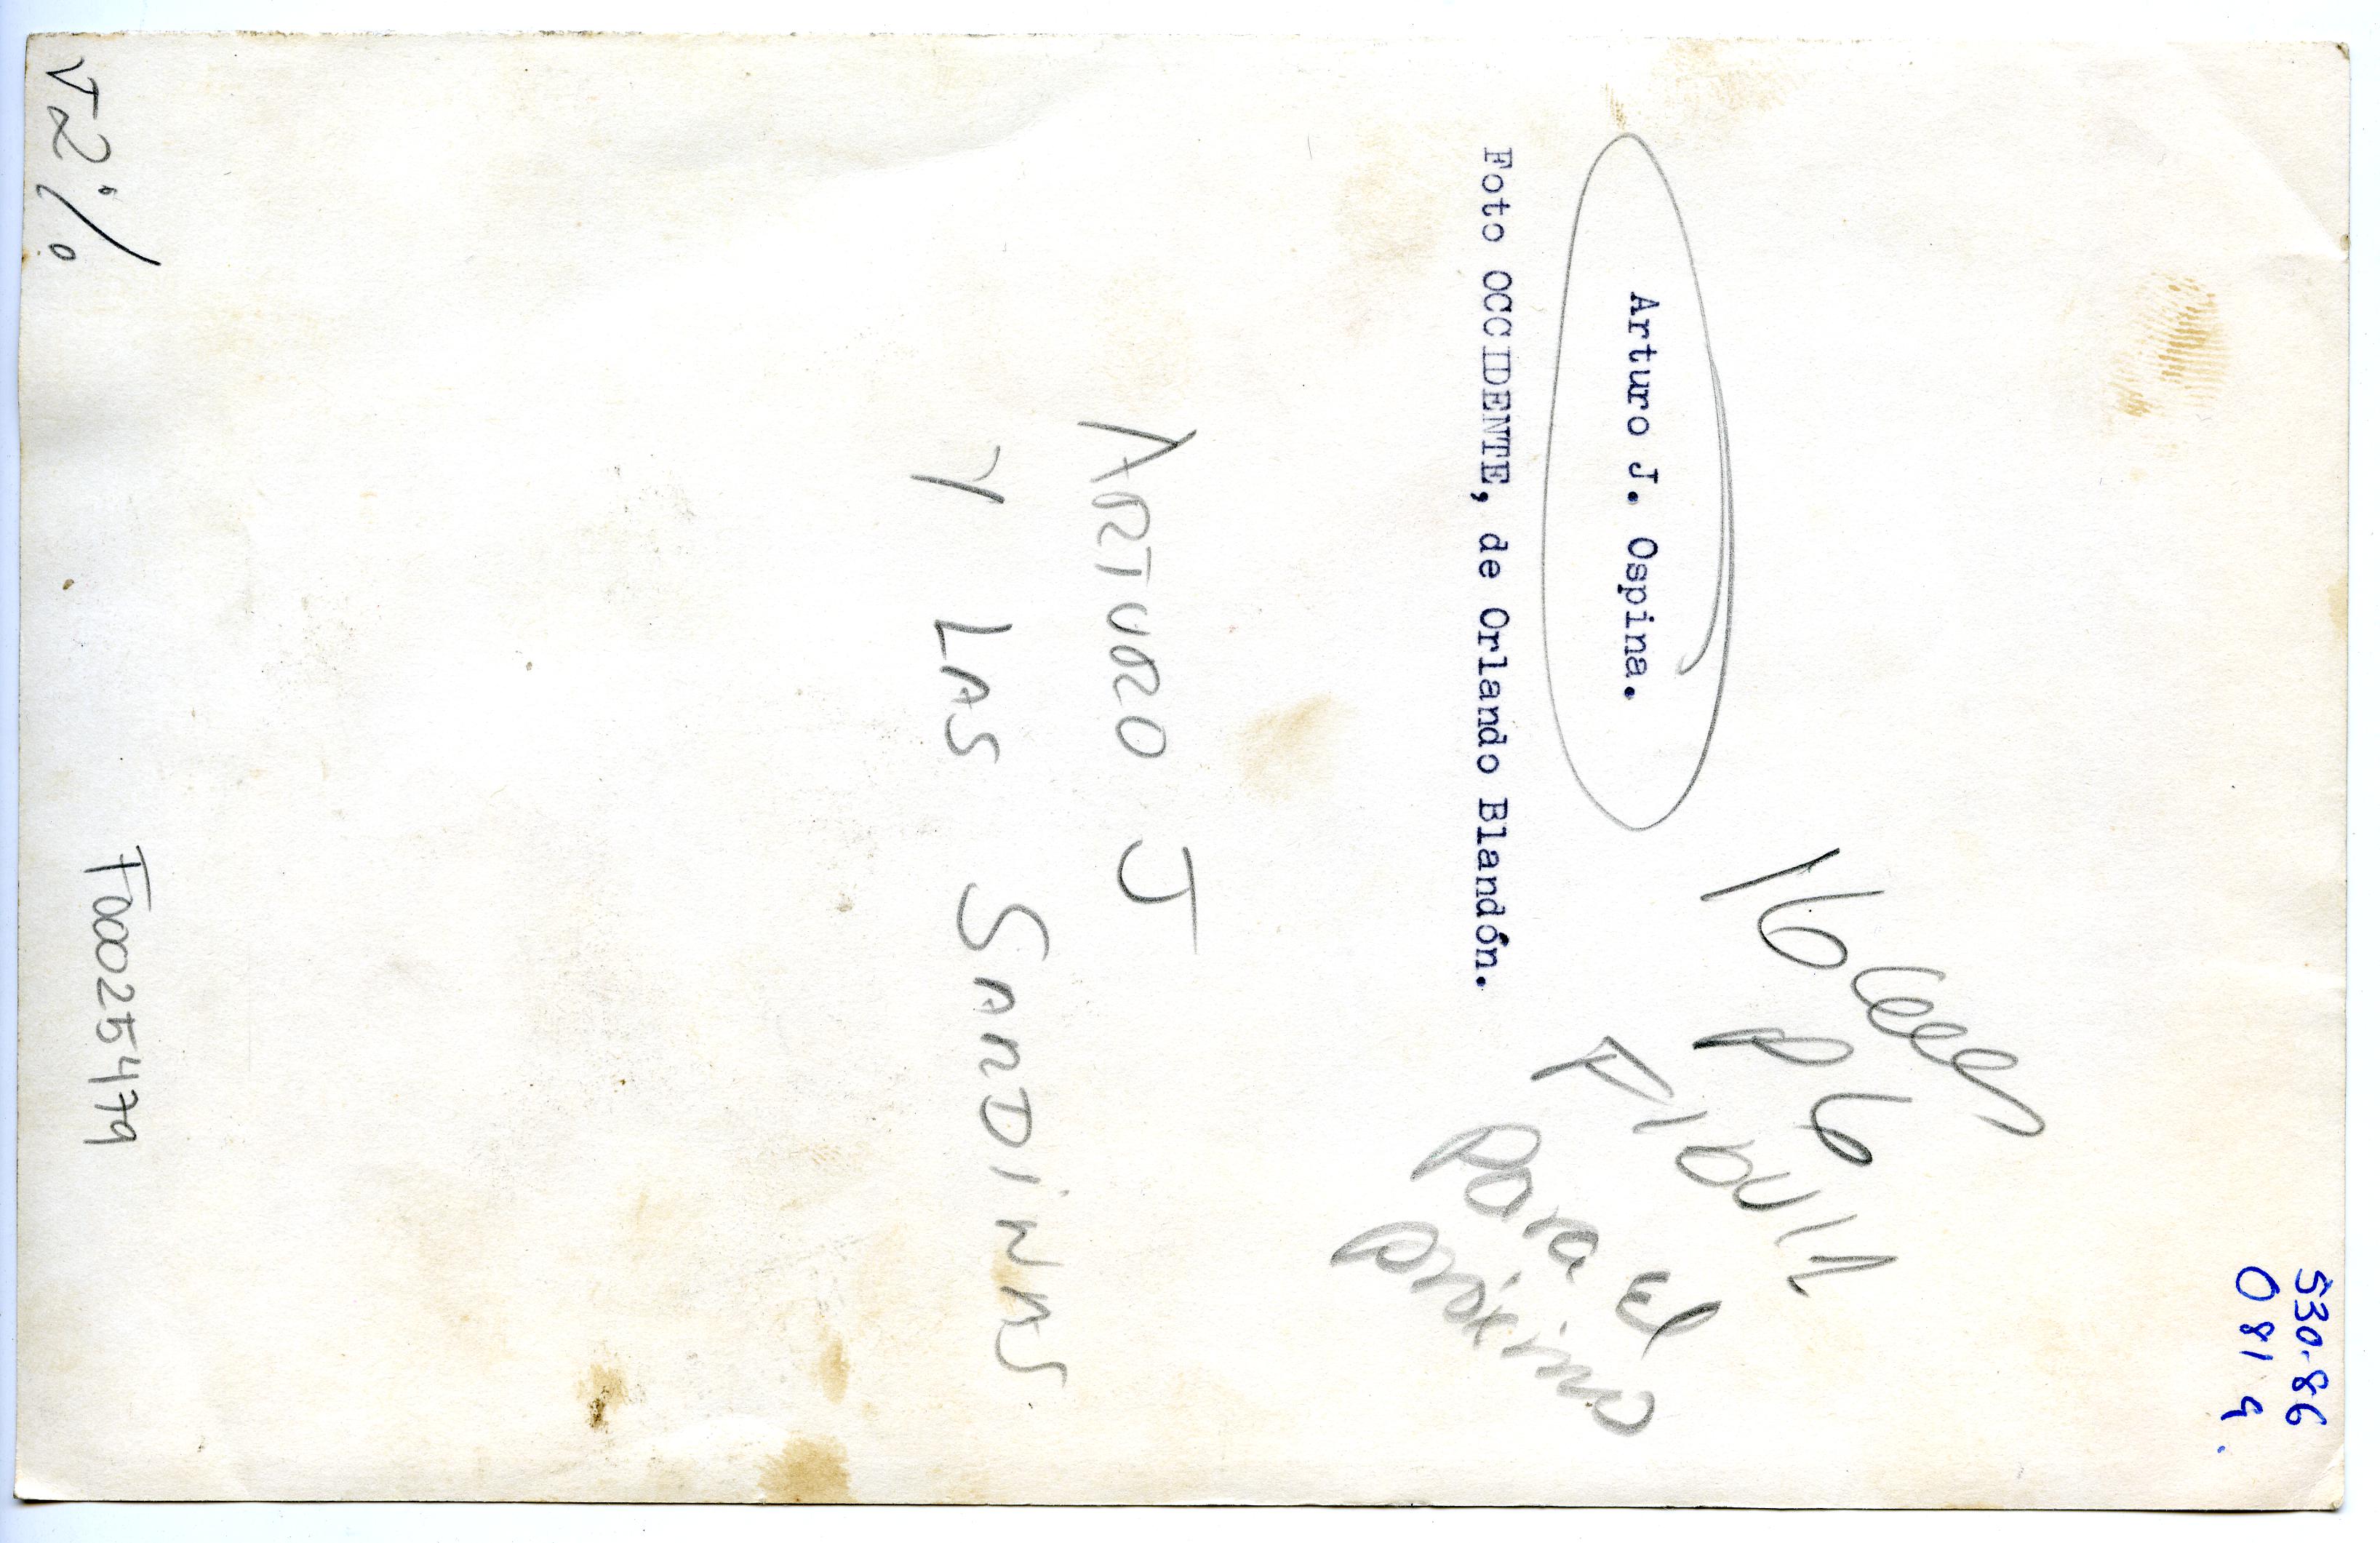 530-86
0819.
Arturo J. Ospina.
Foto OCCIDENTE, de Orlando Blandón.
16
P6
Para El
próximo
ARTURO J
Y LAS SARDINAS
F00025479
72%